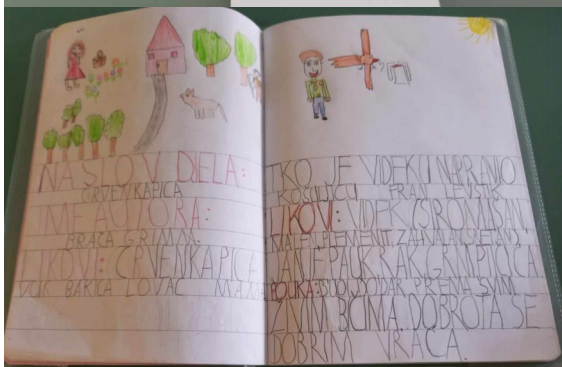 NASLOV DJELA:
CRVENKAPICA
IME AUTORA:
BRAĆA GRIMM
LIKOVI: CRVENKAPICA
VUK BAKICA LOVAC MAMA
TKO JE VIDEKU NAPRAVIO
KOŠULJICU FRAN LEVSTIK
LIKOVI: VIDEK (SIROMAŠAN,
MALEN, PLEMENIT, ZAHVALAN,
JANJE PAUK RAK GRM PTIČICA
POUKA: BUDI DOBAR PREMA SVIM
ŽIVIM BIĆIMA. DOBROTA SE
DOBRIM VRAĆA.